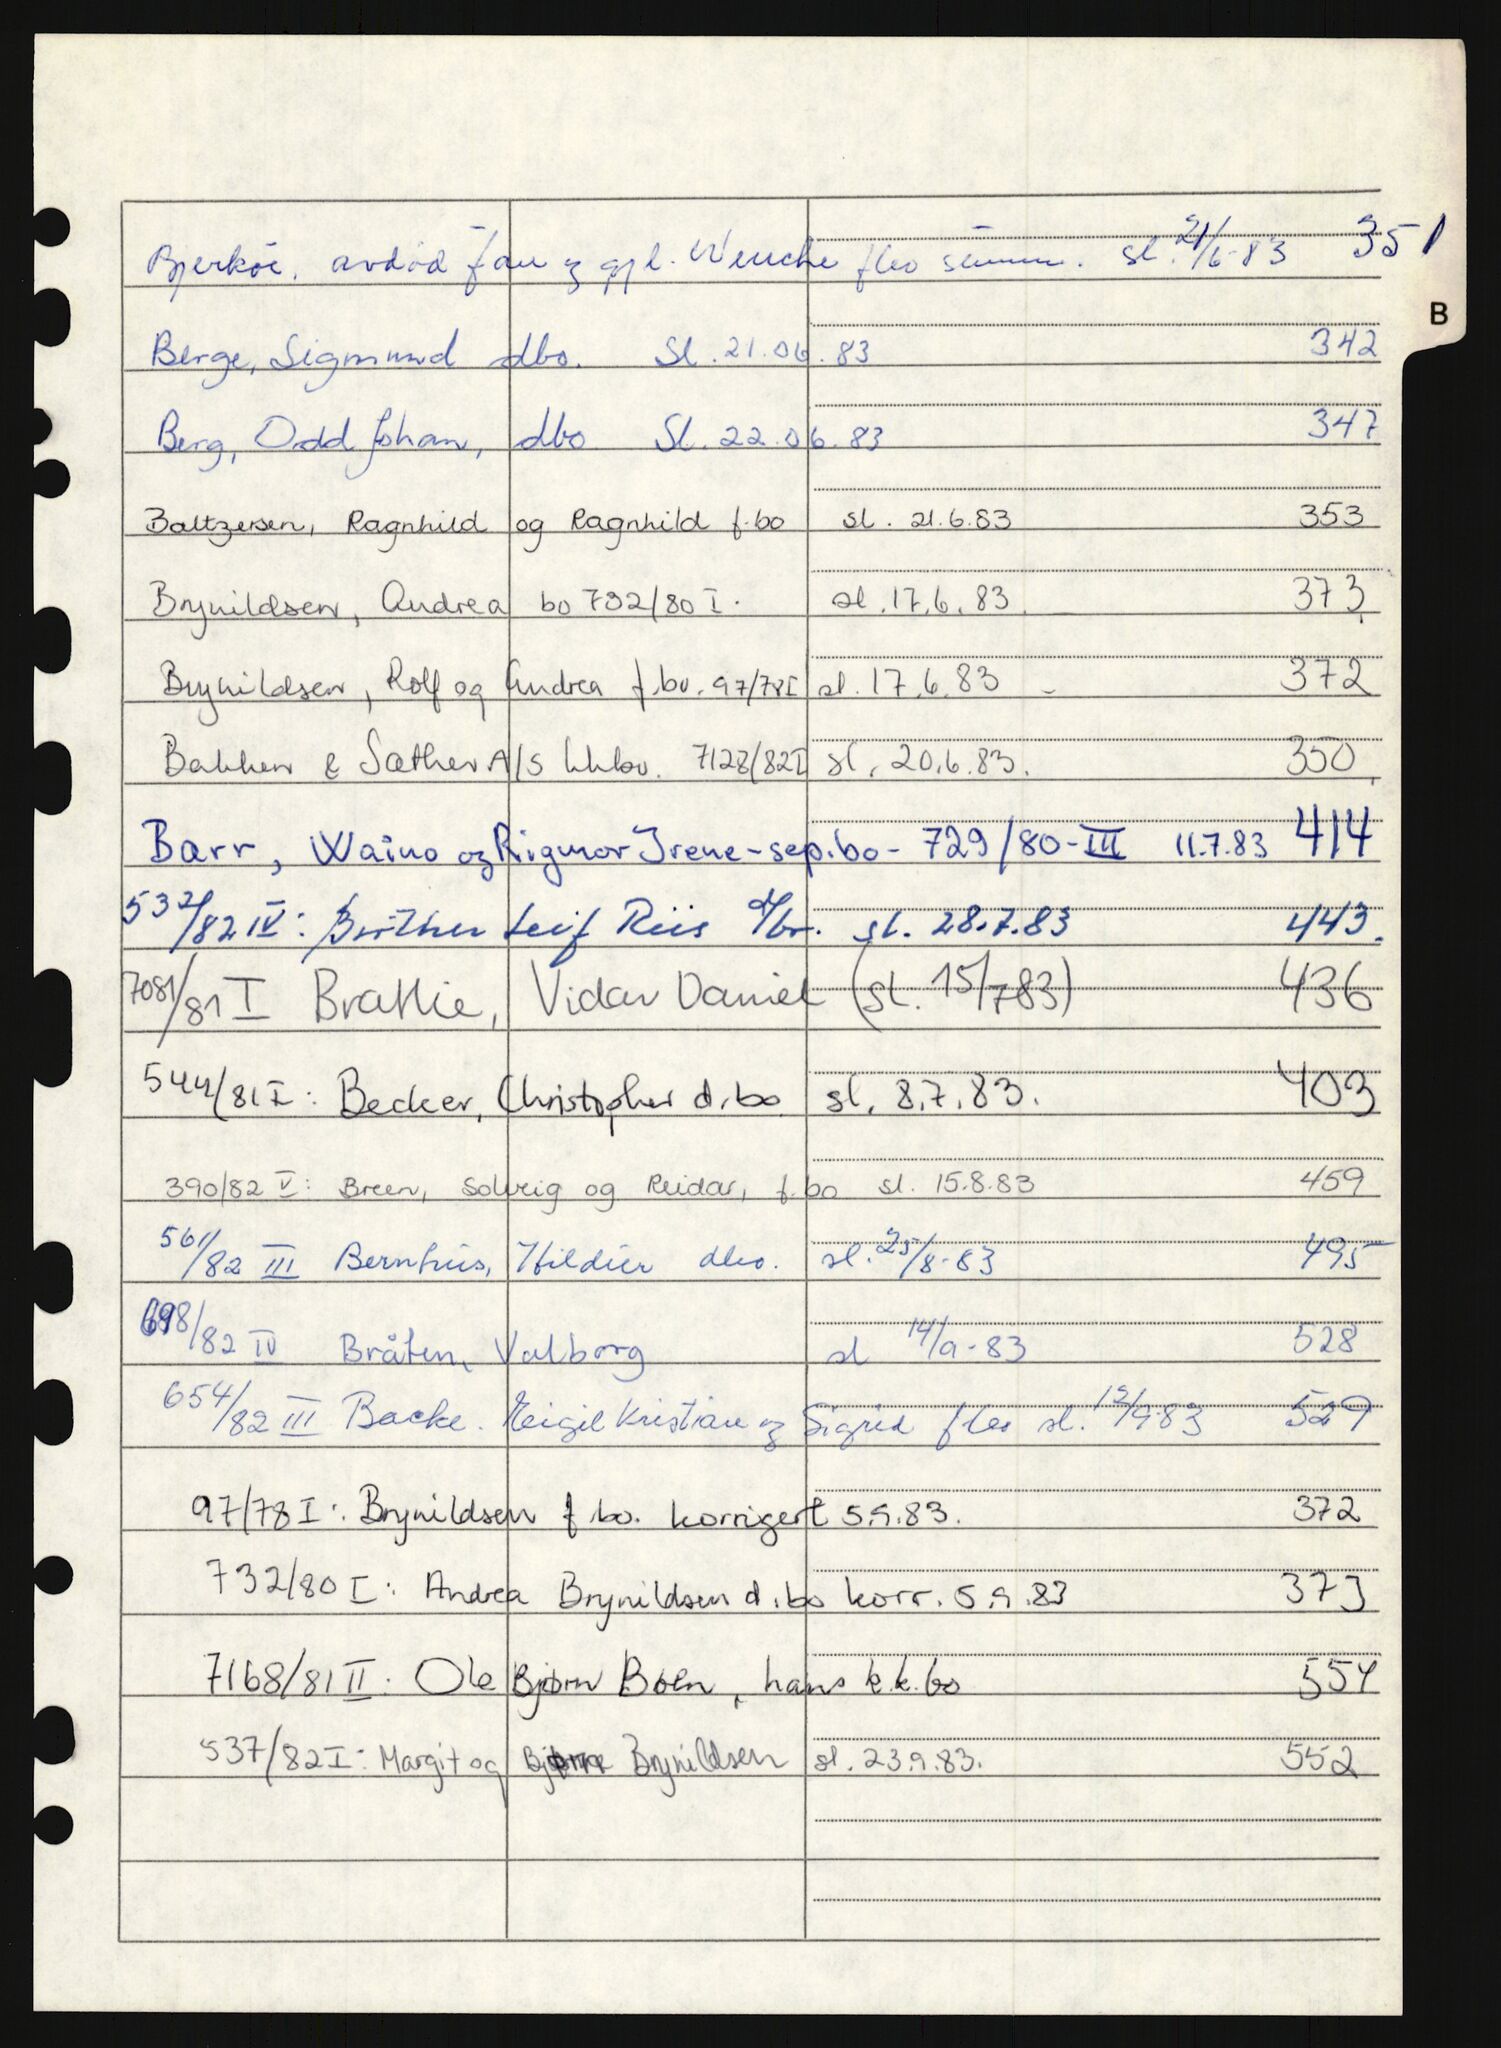 Bjerköe. avdød Jan og gjl. Wenche sl. 21/6-83 351
B
Berge, Sigmund dbo. Sl. 21.06.83 342
Berg, Odd Johan, dbo Sl. 22.06.83 347
Baltzersen, Ragnhild og Ragnhild f.bo sl. 21.6.83 353
Brynildsen, Andrea bo 732/80 I. sl. 17.6.83 373
Brynildsen, Rolf og Andrea f.bo. 97/78 I sl. 17.6.83 - 372
Bakken & Sæther A/S kkbo. 7128/82 I sl. 20.6.83. 350
Barr, Waino og Rigmor Irene - sep.bo - 729/80 - III 11.7.83 414
532/82 IV: Leif Riis d/bo. sl. 28.7.83 443.
7081/81 I Bratlie, Vidar Daniel (sl. 15/7 83) 436
544/81 I: Becker, Christopher d.bo sl. 8.7.83. 403
390/82 V: Breen, Solveig og Reidar, f.bo sl. 15.8.83 459
561/82 III Bernhus, dbo. sl. 25/8-83 495
698/82 IV Bråten, Valborg sl 14/9-83 528
654/82 III Backe. Eigil Kristian og Sigrid fbo sl. 12/9-83 529
97/78 I: Brynildsen f.bo. korrigert 5.9.83. 372
732/80 I: Andrea Brynildsen d.bo korr. 5.9.83 373
7168/81 II: Ole Bjørn Bøen, hans k.k.bo 554
537/82 I: Margit og Bjarne Brynildsen sl. 23.9.83. 552